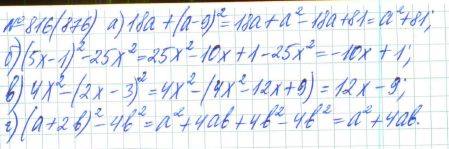 № 816 (876) а) 18a + (a - 9)² = 18a + a² - 18a + 81 = a² + 81;
б) (5x - 1)² - 25x² = 25x² - 10x + 1 - 25x² = -10x + 1;
в) 4x² - (2x - 3)² = 4x² - (4x² - 12x + 9) = 12x - 9;
г) (a + 2b)² - 4b² = a² + 4ab + 4b² - 4b² = a² + 4ab.